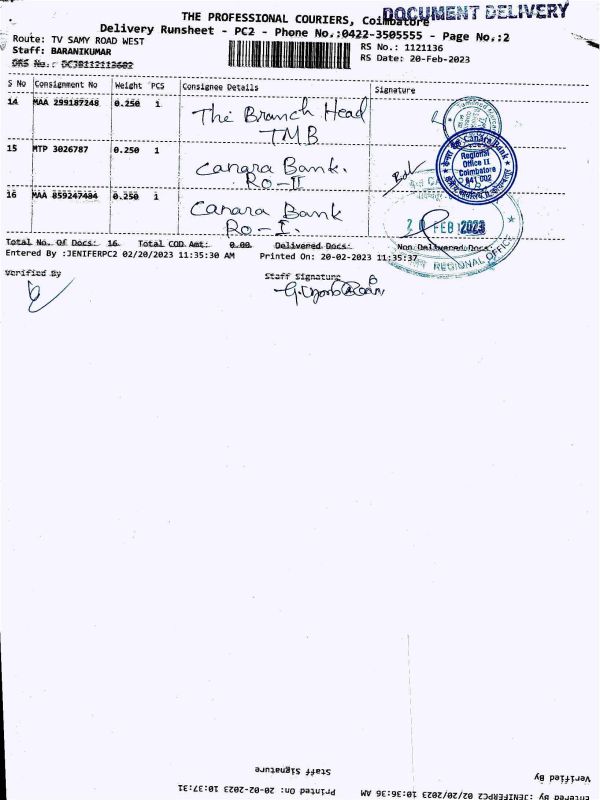 DOCUMENT DELIVERY
THE PROFESSIONAL COURIERS, Coimbatore
Delivery Runsheet - PC2 - Phone No.:0422-3505555 - Page No.:2
Route: TV SAMY ROAD WEST
RS No.: 1121136
Staff: BARANIKUMAR
RS Date: 20-Feb-2023
DRS No.: DCJB112113682
S No Consignment No Weight PCS Consignee Details Signature
14 MAA 299187248 0.250 1 The Branch Head
TMB
15 MTP 3026787 0.250 1 Canara Bank.
RO-II
Canara Bank
Regional
Office II
Coimbatore
641 002
16 MAA 859247484 0.250 1 Canara Bank
RO-I.
20 FEB 2023
REGIONAL OFFICE
Total No. Of Docs: 16 Total COD Amt: 0.00 Delivered Docs: Non Delivered Docs
Entered By :JENIFERPC2 02/20/2023 11:35:30 AM Printed On: 20-02-2023 11:35:37
Verified By Staff Signature
Staff Signature Verified By
Entered By :JENIFERPC2 02/20/2023 10:36:36 AM Printed On: 20-02-2023 10:37:31